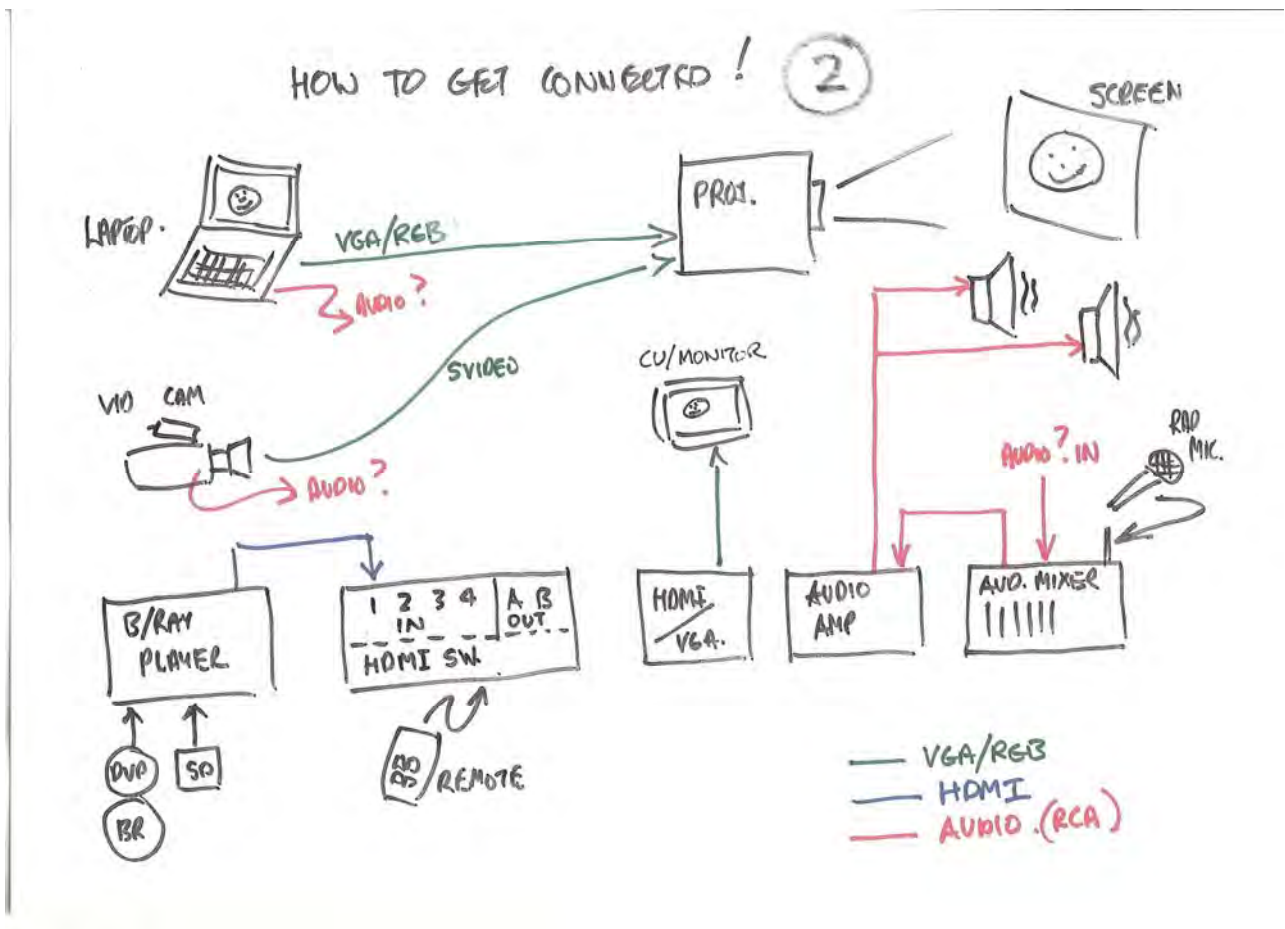 HOW TO GET CONNECTED! 2
SCREEN
PROJ.
LAPTOP.
VGA/RGB
AUDIO?
SVIDEO
CU/MONITOR
VID CAM
AUDIO?
AUDIO? IN
RAD
MIC.
B/RAY
PLAYER
1 2 3 4
IN
A B
OUT
HDMI SW.
HDMI
VGA.
AUDIO
AMP
AUD. MIXER
DVD
SD
BR
REMOTE
VGA/RGB
HDMI
AUDIO.(RCA)